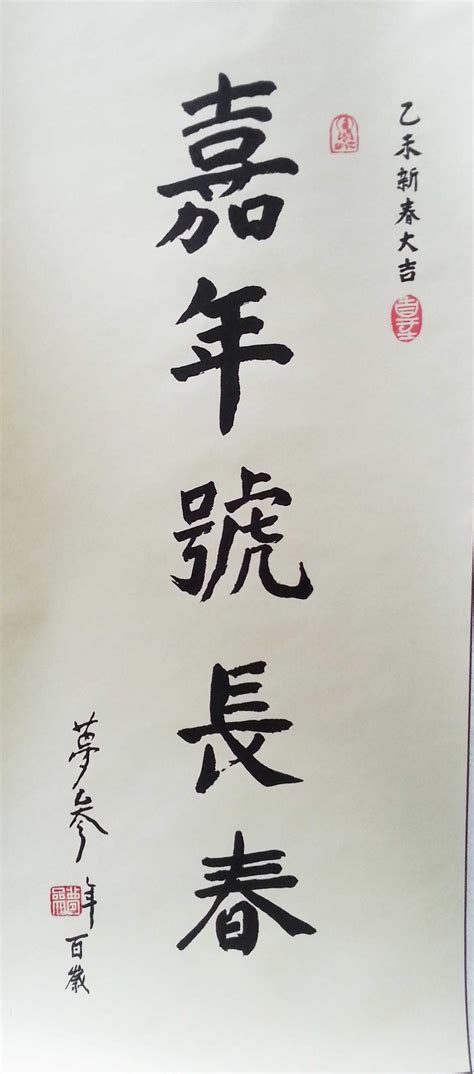 乙未新春大吉
嘉年號長春
夢參
年百歲